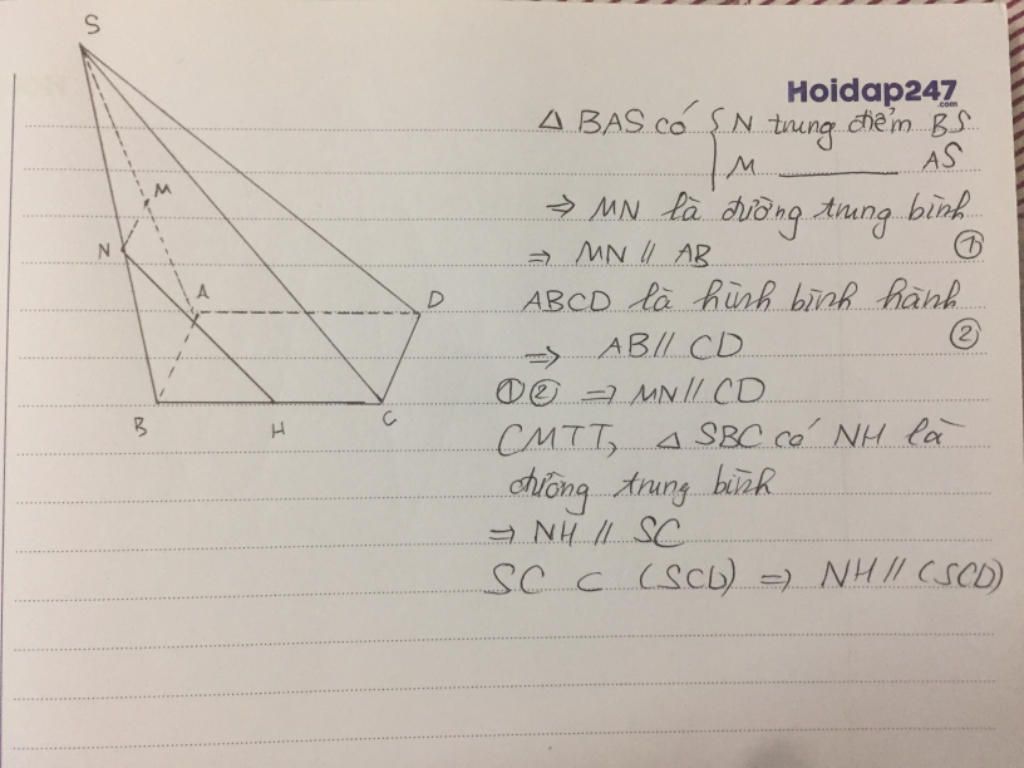 S
Hoidap247
.com
Δ BAS có { N trung điểm BS
M ———— AS
⇒ MN là đường trung bình
⇒ MN // AB ①
ABCD là hình bình hành
⇒ AB // CD ②
① ② ⇒ MN // CD
CMTT, Δ SBC có NH là
đường trung bình
⇒ NH // SC
SC ⊂ (SCD) ⇒ NH // (SCD)
M
N
A
D
B
H
C